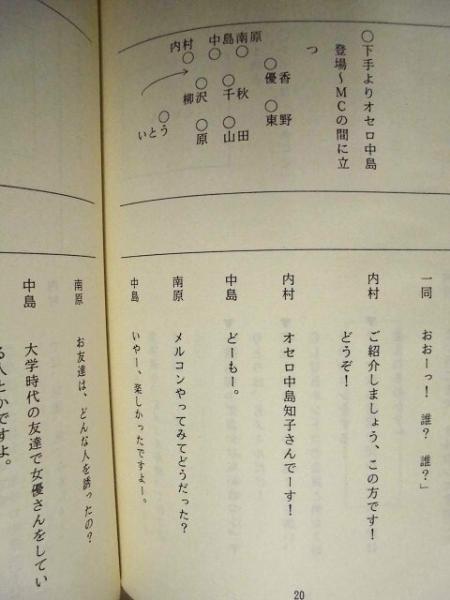 〇下手よりオセロ中島
登場～MCの間に立
つ
内村
中島
南原
優香
柳沢
千秋
東野
いとう
原
山田
一同　おおーっ！　誰？　誰？」
内村　ご紹介しましょう、この方です！
どうぞ！
内村　オセロ中島知子さんでーす！
中島　どーもー。
南原　メルコンやってみてどうだった？
中島　いやー、楽しかったですよー。
20
南原　お友達は、どんな人を誘ったの？
中島　大学時代の友達で女優さんをしてい
る人とかですよ。